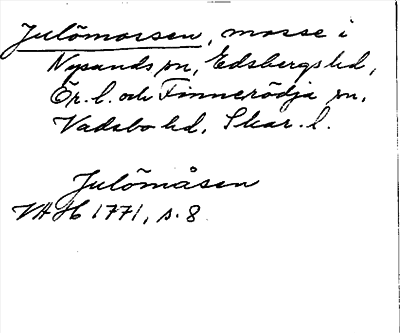 Julömossen, mosse i
Nysunds sn, Edsbergs hd,
Ör. l. och Finnerödja sn,
Vadsbo hd, Skar. l.
Julömåsen
VAH 1771, s. 8